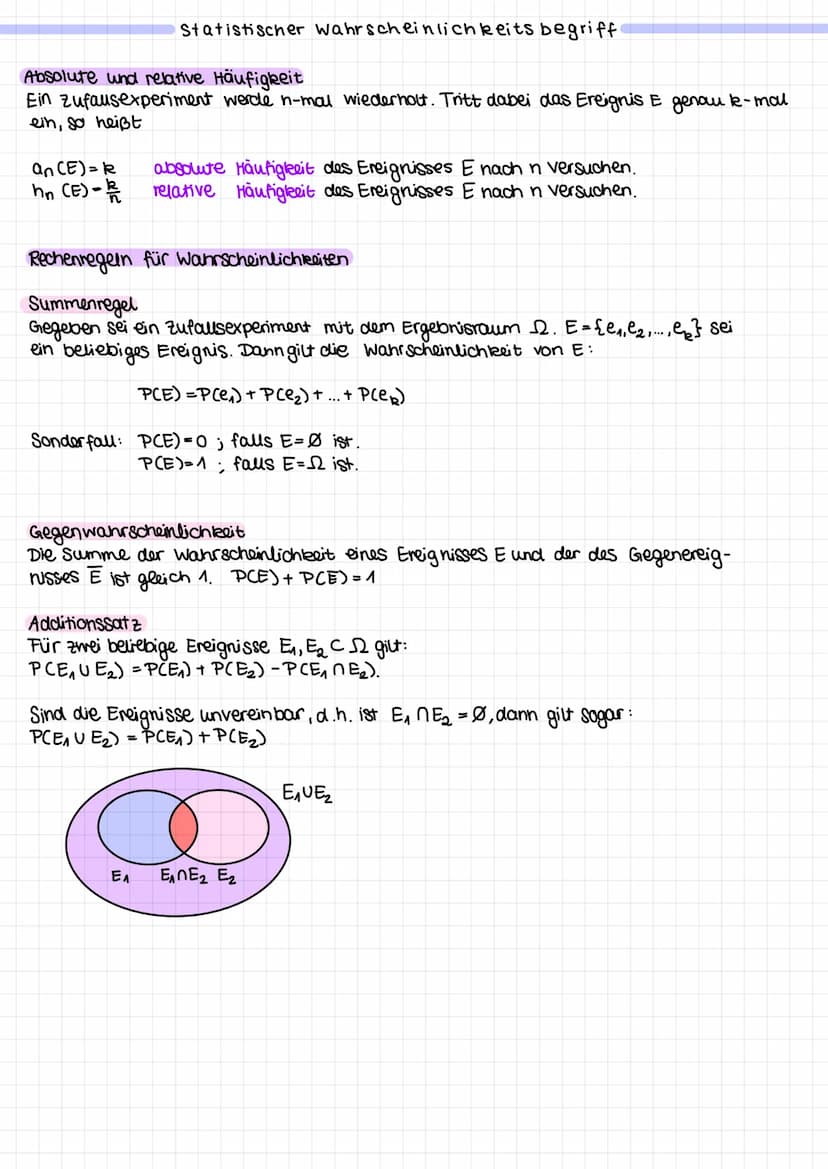 Statistischer Wahrscheinlichkeitsbegriff
Absolute und relative Häufigkeit
Ein Zufausexperiment werde n-mal wiederholt. Tritt dabei das Ereignis E genau k-mal
ein, so heißt
aₙ(E)=k absolute Häufigkeit des Ereignisses E nach n Versuchen.
hₙ(E)=k/n relative Häufigkeit des Ereignisses E nach n Versuchen.
Rechenregeln für Wahrscheinlichkeiten
Summenregel
Gegeben sei ein Zufallsexperiment mit dem Ergebnisraum Ω. E={e₁,e₂,...,eₖ} sei
ein beliebiges Ereignis. Dann gilt die Wahrscheinlichkeit von E:
P(E)=P(e₁)+P(e₂)+...+P(eₖ)
Sonderfall: P(E)=0 ; falls E=Ø ist.
P(E)=1 ; falls E=Ω ist.
Gegenwahrscheinlichkeit
Die Summe der Wahrscheinlichkeit eines Ereignisses E und der des Gegenereig-
nisses E̅ ist gleich 1. P(E)+P(E)=1
Additionssatz
Für zwei beliebige Ereignisse E₁,E₂⊂Ω gilt:
P(E₁∪E₂)=P(E₁)+P(E₂)-P(E₁∩E₂).
Sind die Ereignisse unvereinbar, d.h. ist E₁∩E₂=Ø, dann gilt sogar:
P(E₁∪E₂)=P(E₁)+P(E₂)
E₁∪E₂
E₁ E₁∩E₂ E₂